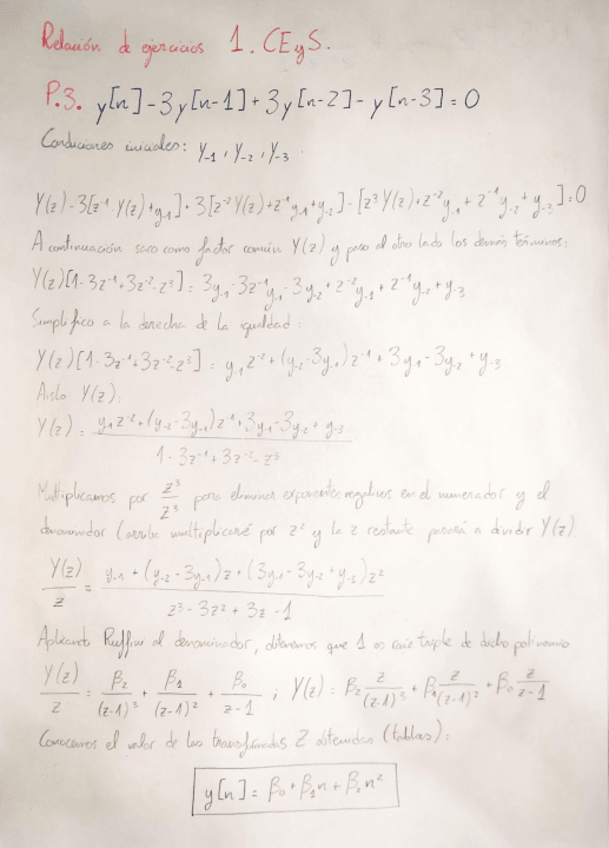 Relación de ejercicios 1. CEyS.
P.3. y[n]-3y[n-1]+3y[n-2]-y[n-3]=0
Condiciones iniciales: y₋₁, y₋₂, y₋₃.
Y(z)-3[z⁻¹·Y(z)+y₋₁]+3[z⁻²Y(z)+z⁻¹y₋₁+y₋₂]-[z⁻³Y(z)+z⁻²y₋₁+z⁻¹y₋₂+y₋₃]=0
A continuación saco como factor común Y(z) y paso al otro lado los demás términos:
Y(z)[1-3z⁻¹+3z⁻²-z⁻³]=3y₋₁-3z⁻¹y₋₁-3y₋₂+z⁻²y₋₁+z⁻¹y₋₂+y₋₃
Simplifico a la derecha de la igualdad:
Y(z)[1-3z⁻¹+3z⁻²-z⁻³]=y₋₁z⁻²+(y₋₂-3y₋₁)z⁻¹+3y₋₁-3y₋₂+y₋₃
Aislo Y(z):
Y(z)= y₋₁z⁻²+(y₋₂-3y₋₁)z⁻¹+3y₋₁-3y₋₂+y₋₃
1-3z⁻¹+3z⁻²-z⁻³
Multiplicamos por z³/z³ para eliminar exponentes negativos en el numerador y el
denominador (arriba multiplicaré por z² y la z restante pasará a dividir Y(z))
Y(z)/z = y₋₁+(y₋₂-3y₋₁)z+(3y₋₁-3y₋₂+y₋₃)z²
z³-3z²+3z-1
Aplicando Ruffini al denominador, obtenemos que 1 es raíz triple de dicho polinomio
Y(z)/z = β₂/(z-1)³ + β₁/(z-1)² + β₀/z-1 ; Y(z)=β₂ z/(z-1)³ + β₁ z/(z-1)² + β₀ z/z-1
Conocemos el valor de las transformadas Z obtenidas (tablas):
y[n]=β₀+β₁n+β₂n²